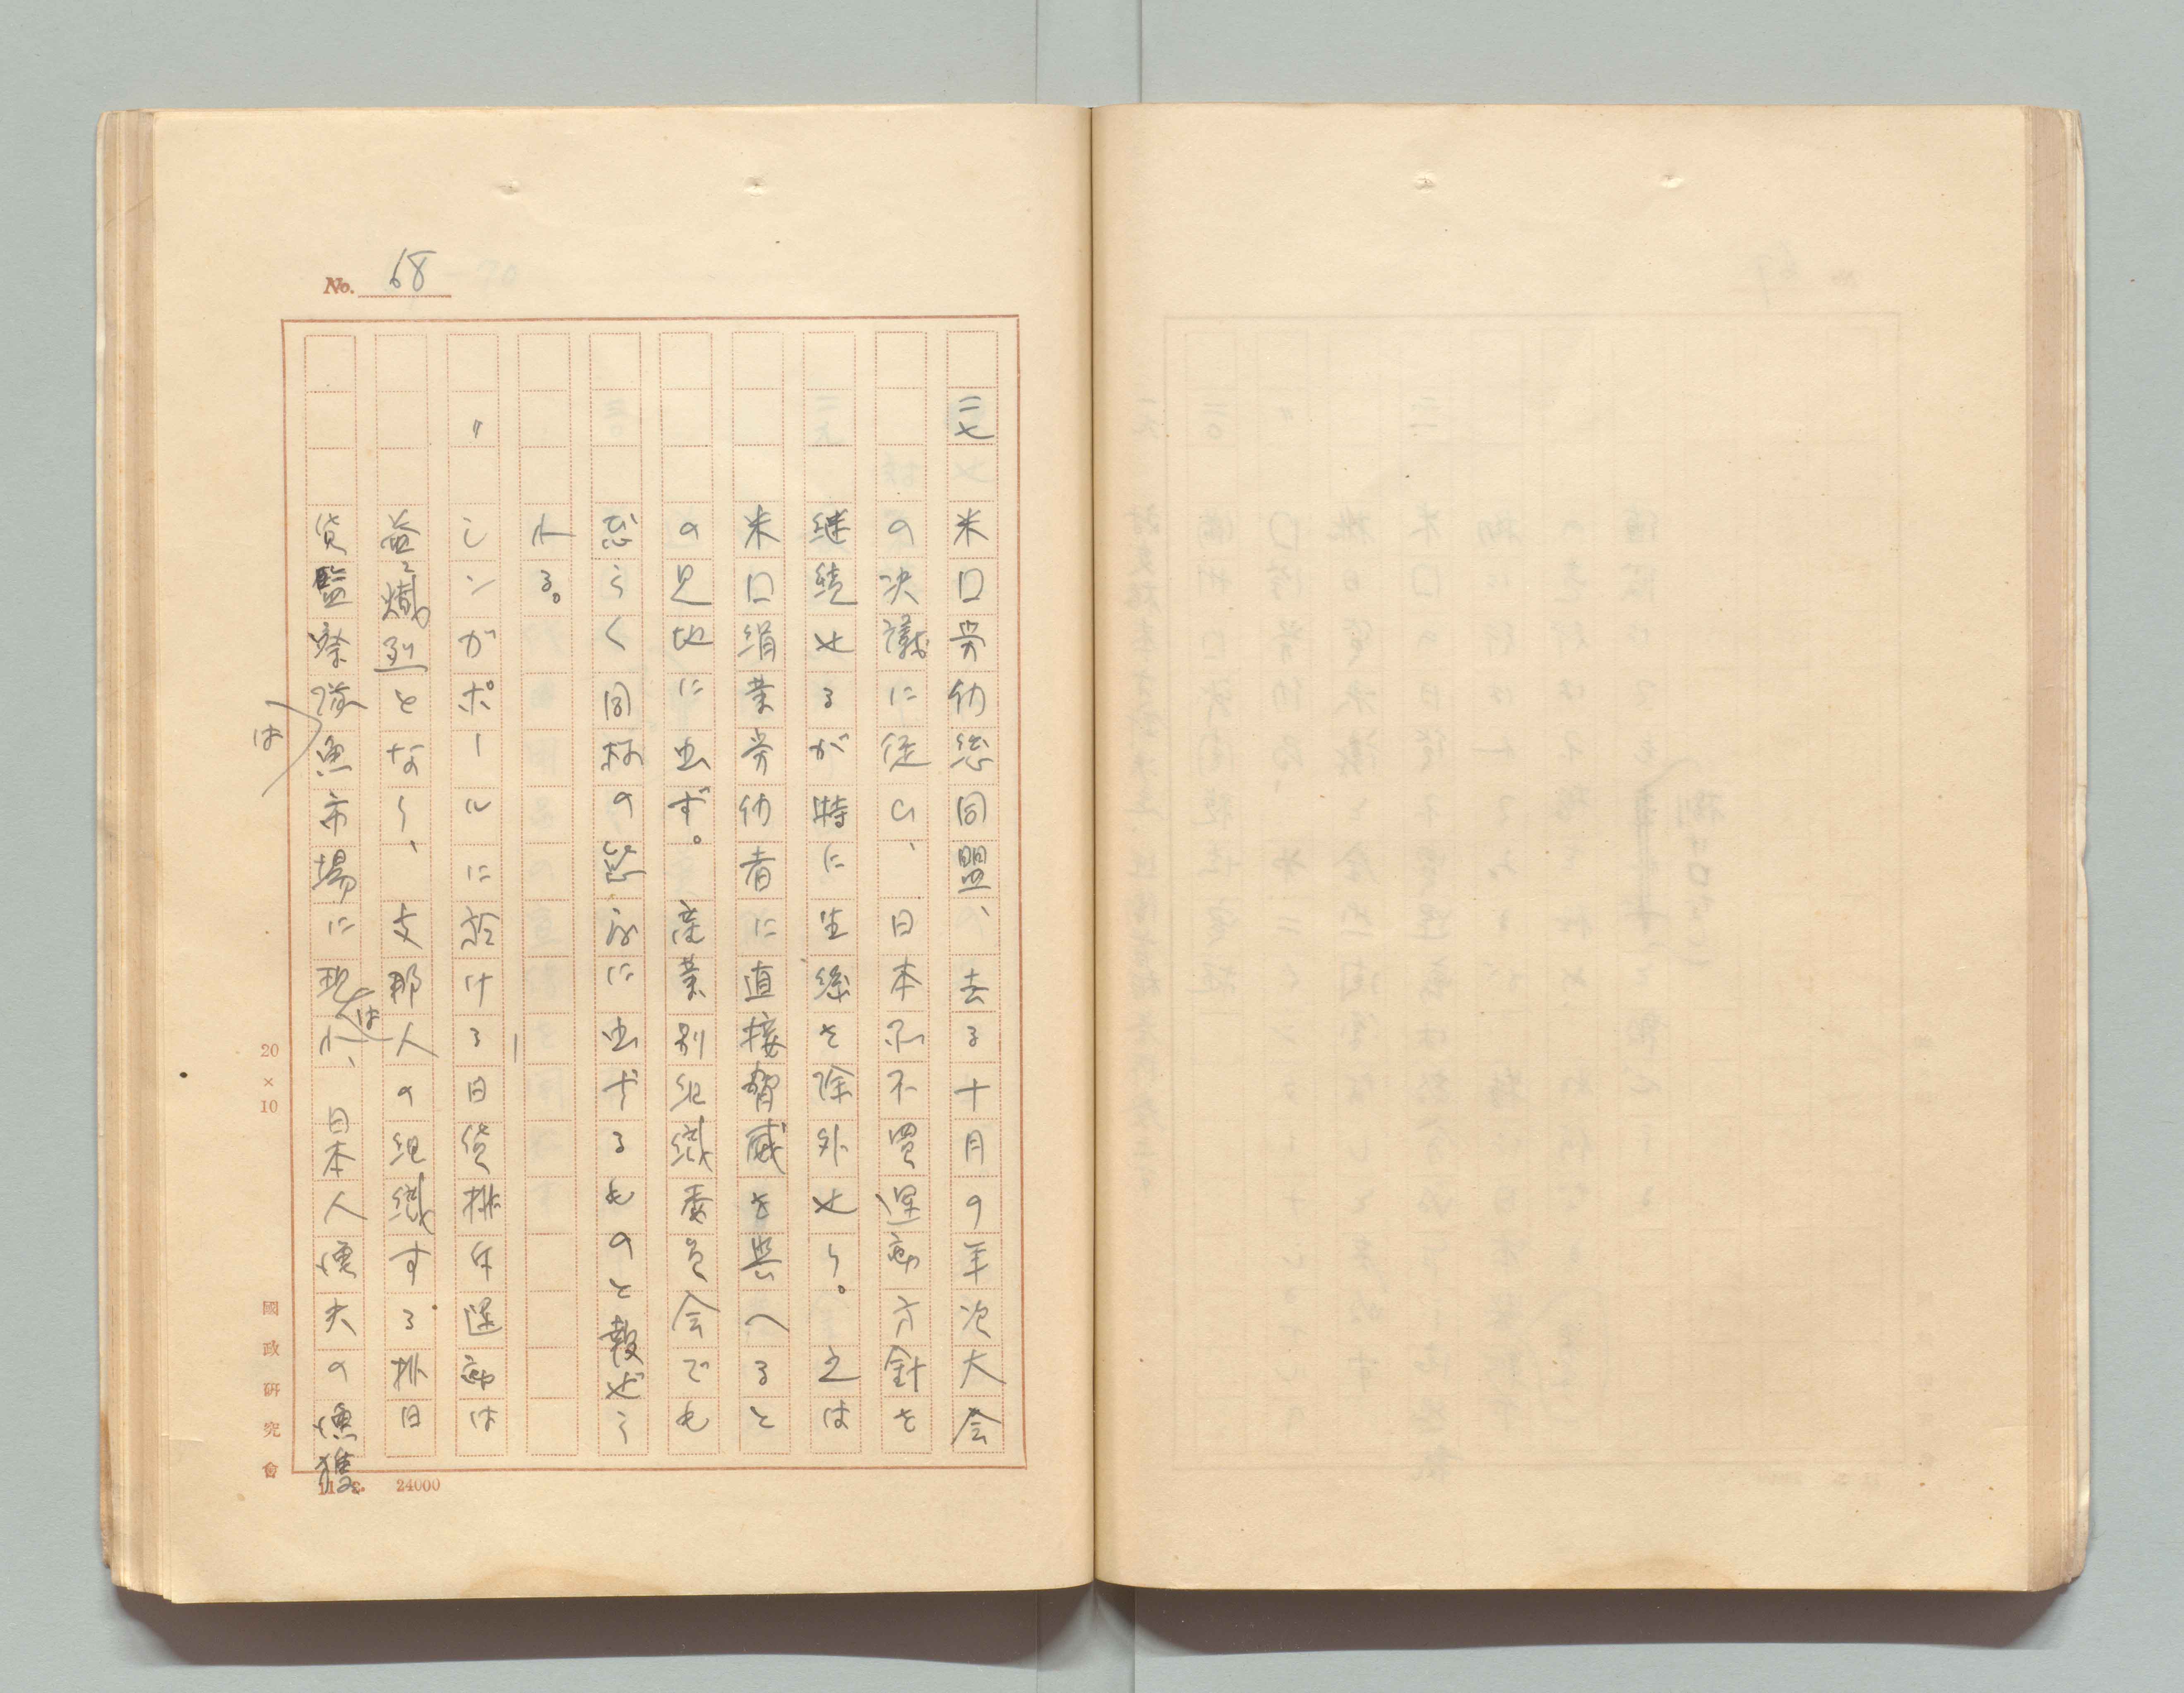 No. 68
二七 米口労仂総同盟、去る十月の年次大会
の決議に従ひ、日本品不買運動方針を
継続せるが特に生絲を除外せり。之は
米口絹業労仂者に直接脅威を與へると
の見地に出ず。産業別組織委員会でも
恐らく同様の に出ずるものと報ぜら
れる。
〃 シンガポールに於ける日貨排斥運動は
益々熾烈となり、支那人の組織する排日
貨監察隊は魚市場に現はれ、日本人漁夫の漁獲
20×10
國政研究會
24000